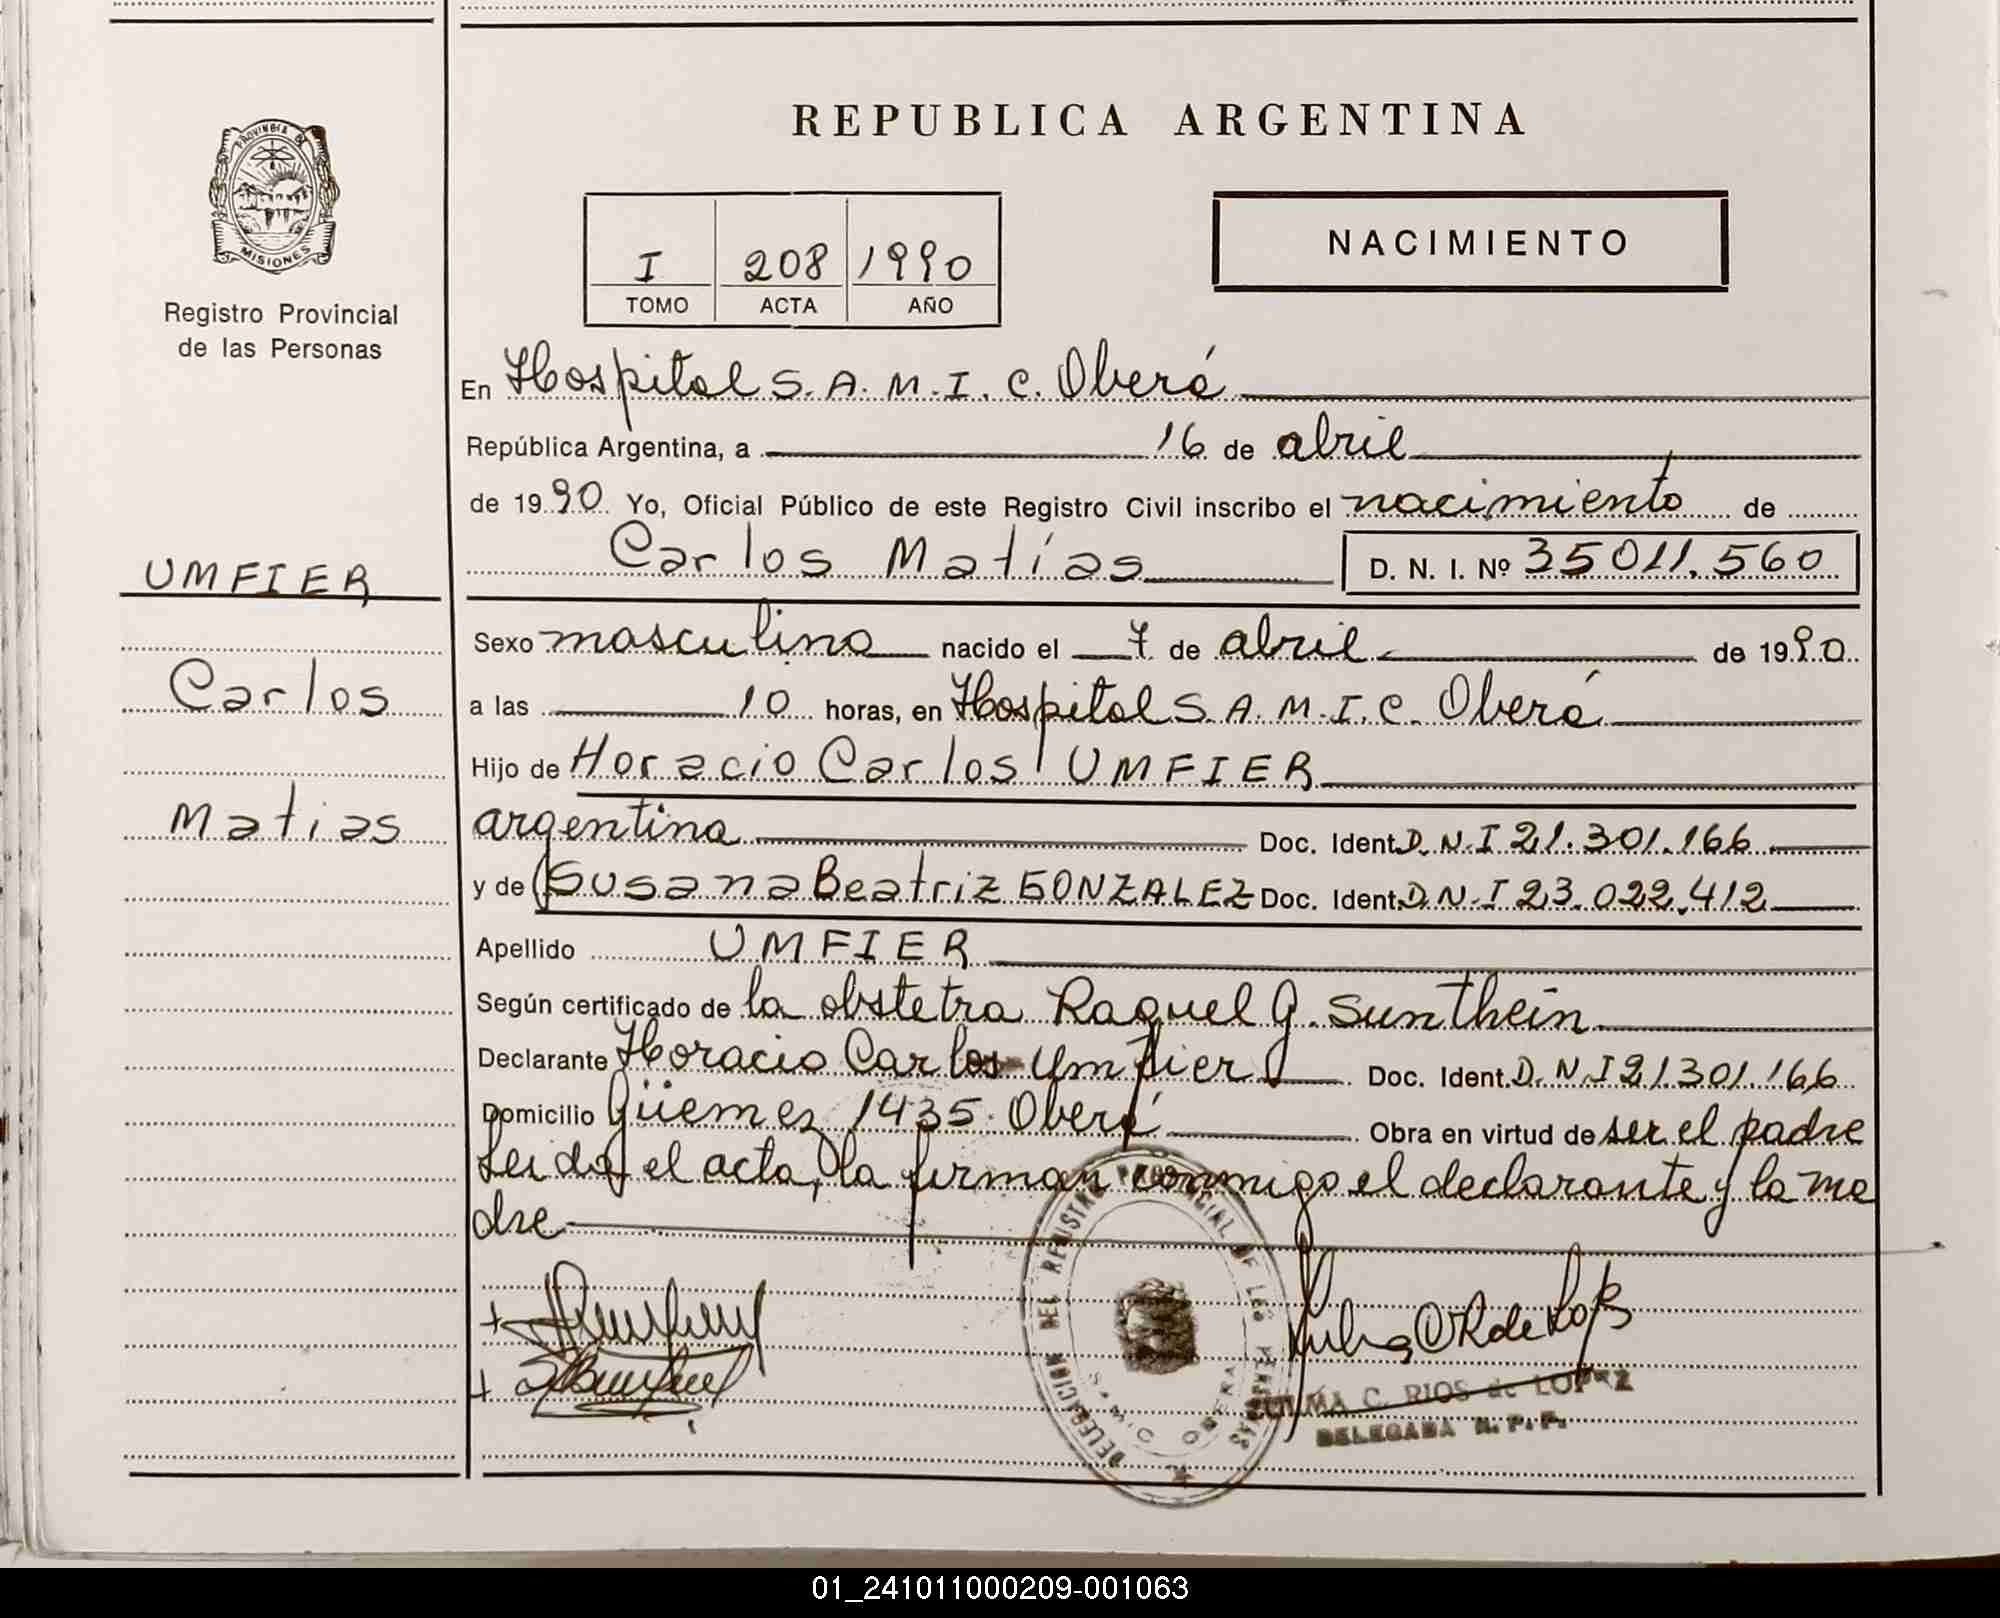 REPUBLICA ARGENTINA
PROVINCIA DE
MISIONES
Registro Provincial
de las Personas
I 208 1990
TOMO ACTA AÑO
NACIMIENTO
En Hospital S.A.M.I.C. Oberá
República Argentina, a 16 de abril
de 1990 Yo, Oficial Público de este Registro Civil inscribo el nacimiento de
Carlos Matías D. N. I. Nº 35011.560
UMFIER
Carlos
Matias
Sexo masculino nacido el 7 de abril de 1990
a las 10 horas, en Hospital S.A.M.I.C. Oberá
Hijo de Horacio Carlos UMFIER
argentina Doc. Ident. D.N.I 21.301.166
y de Susana Beatriz GONZALEZ Doc. Ident. D.N.I 23.022.412
Apellido UMFIER
Según certificado de la obstetra Raquel G. Sunthein
Declarante Horacio Carlos Umfier Doc. Ident. D.N.I 21.301.166
Domicilio Güemes 1435. Oberá Obra en virtud de ser el padre
Leida el acta, la firman conmigo el declarante y la ma
dre
DELEGACION DEL REGISTRO PROVINCIAL DE LAS PERSONAS
S.A.M.I.C OBERA
ZULMA C. RIOS de LOPEZ
DELEGADA R. P. P.
01_241011000209-001063